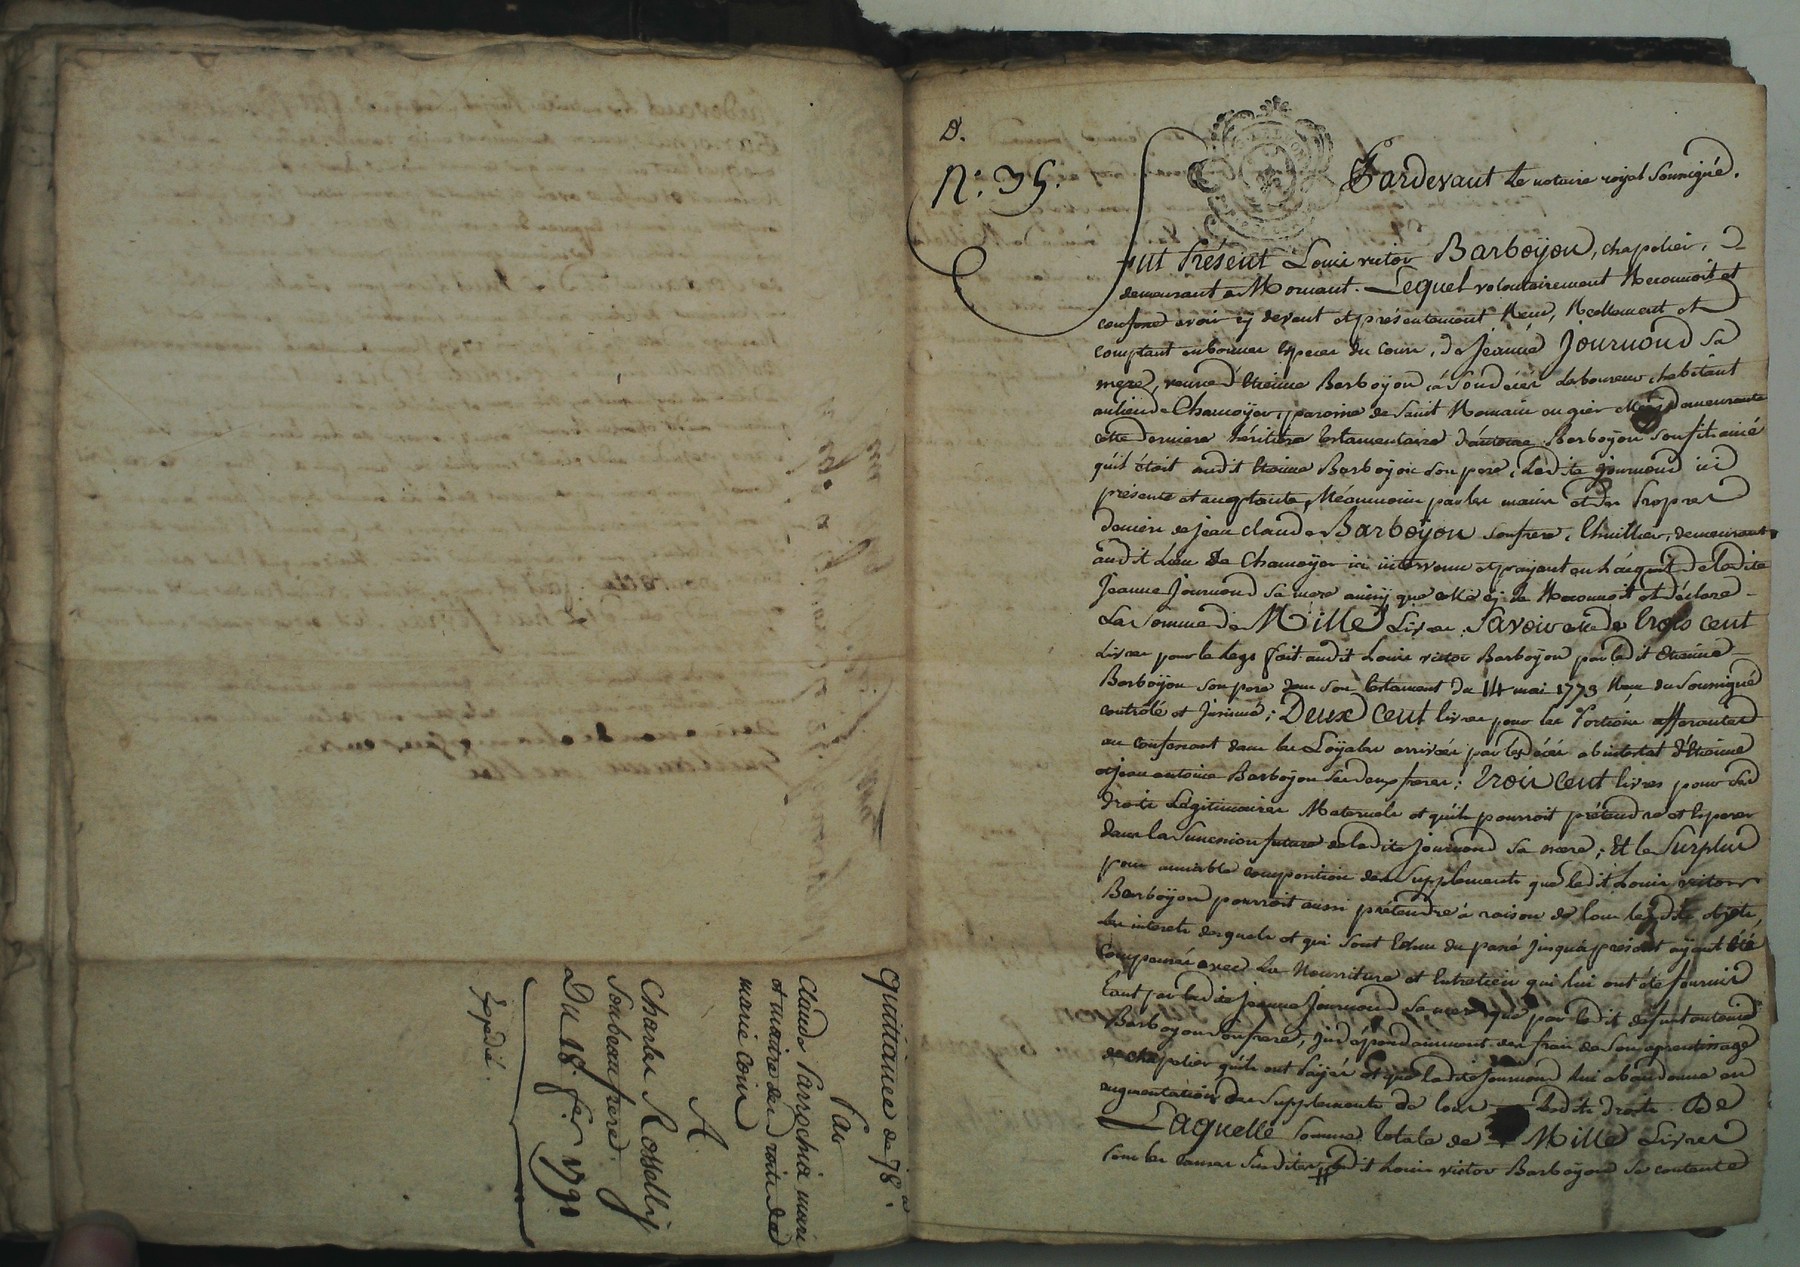 quittance de 78.ᵃ
Par
Claude Parrochia mari
et maitre des droits de
marie coin
A.
Charle Rosselly
Son beau frere.
Du 18. fer. 1791
Expedié.
D.
N.° 35.
Pardevant Le notaire royal Soussigné.
fut Présent Louis victor Barboÿon, chapelier,
demeurant a Mornant. Lequel volontairement Reconnoit et
confesse avoir cy devant et présentement Reçu, Réellement et
comptant en bonnes Especes du Cours, de Jeanne Journoud Sa
mere, veuve d'Etienne Barboÿon, a Son décés Laboureur, habitant
au lieu de Chamoÿer, paroisse de Saint Romain en gier demeurante
cette derniere héritiére testamentaire d'antoine Barboÿon Son fils ainé
qu'il étoit audit Etienne Barboÿon Son pere, Ladite Journoud ici
présente et acceptante, Néanmoins par les mains et des Propres
deniers de jean claude Barboÿon Son frere, demeurant
audit Lieu De Chamoÿer ici intervenu et payant en l'acquit de Ladite
Jeanne Journoud Sa mere ainsy que elle cy le Reconnoit et déclare
La Somme de Mille Livres; Savoir celle de trois cent
Livres pour le Legs fait audit Louis victor Barboÿon par ledit Etienne
Barboÿon Son pere dans Son testament du 14 mai 1773 Reçu du Soussigné
controlé et Insinué; Deux cent livres pour les Portions afferantes
au confessant dans les Loÿales arrivées par les décés abintestat d'Etienne
et jean antoine Barboÿon Ses deux freres; trois cent livres pour Ses
droits Légitimaires Maternels et qu'il pourroit prétendre et Esperer
dans la Succession future de ladite Journoud Sa mere; Et le Surplus
pour amiable composition des Supplements que ledit Louis victor
Barboÿon pourroit aussi prétendre à raison de tous lesdits objets,
les interets desquels et qui Sont Echus du passé jusqu'a présent aÿant été
compensés avec La Nourriture et Entretien qui lui ont été fournis
tant par ladite Jeanne Journoud Sa mere que par ledit defunt antoine
Barboÿon Son frere, indépendamment des frais de Son aprentissage
de chapelier qu'ils ont Paÿés et que ladite Journoud lui abandonne en
augmentation des Supplements de tous Lesdits droits. De
Laquelle Somme totale de Mille Livres
Pour les causes Susdites, ledit Louis victor Barboÿon Se contente